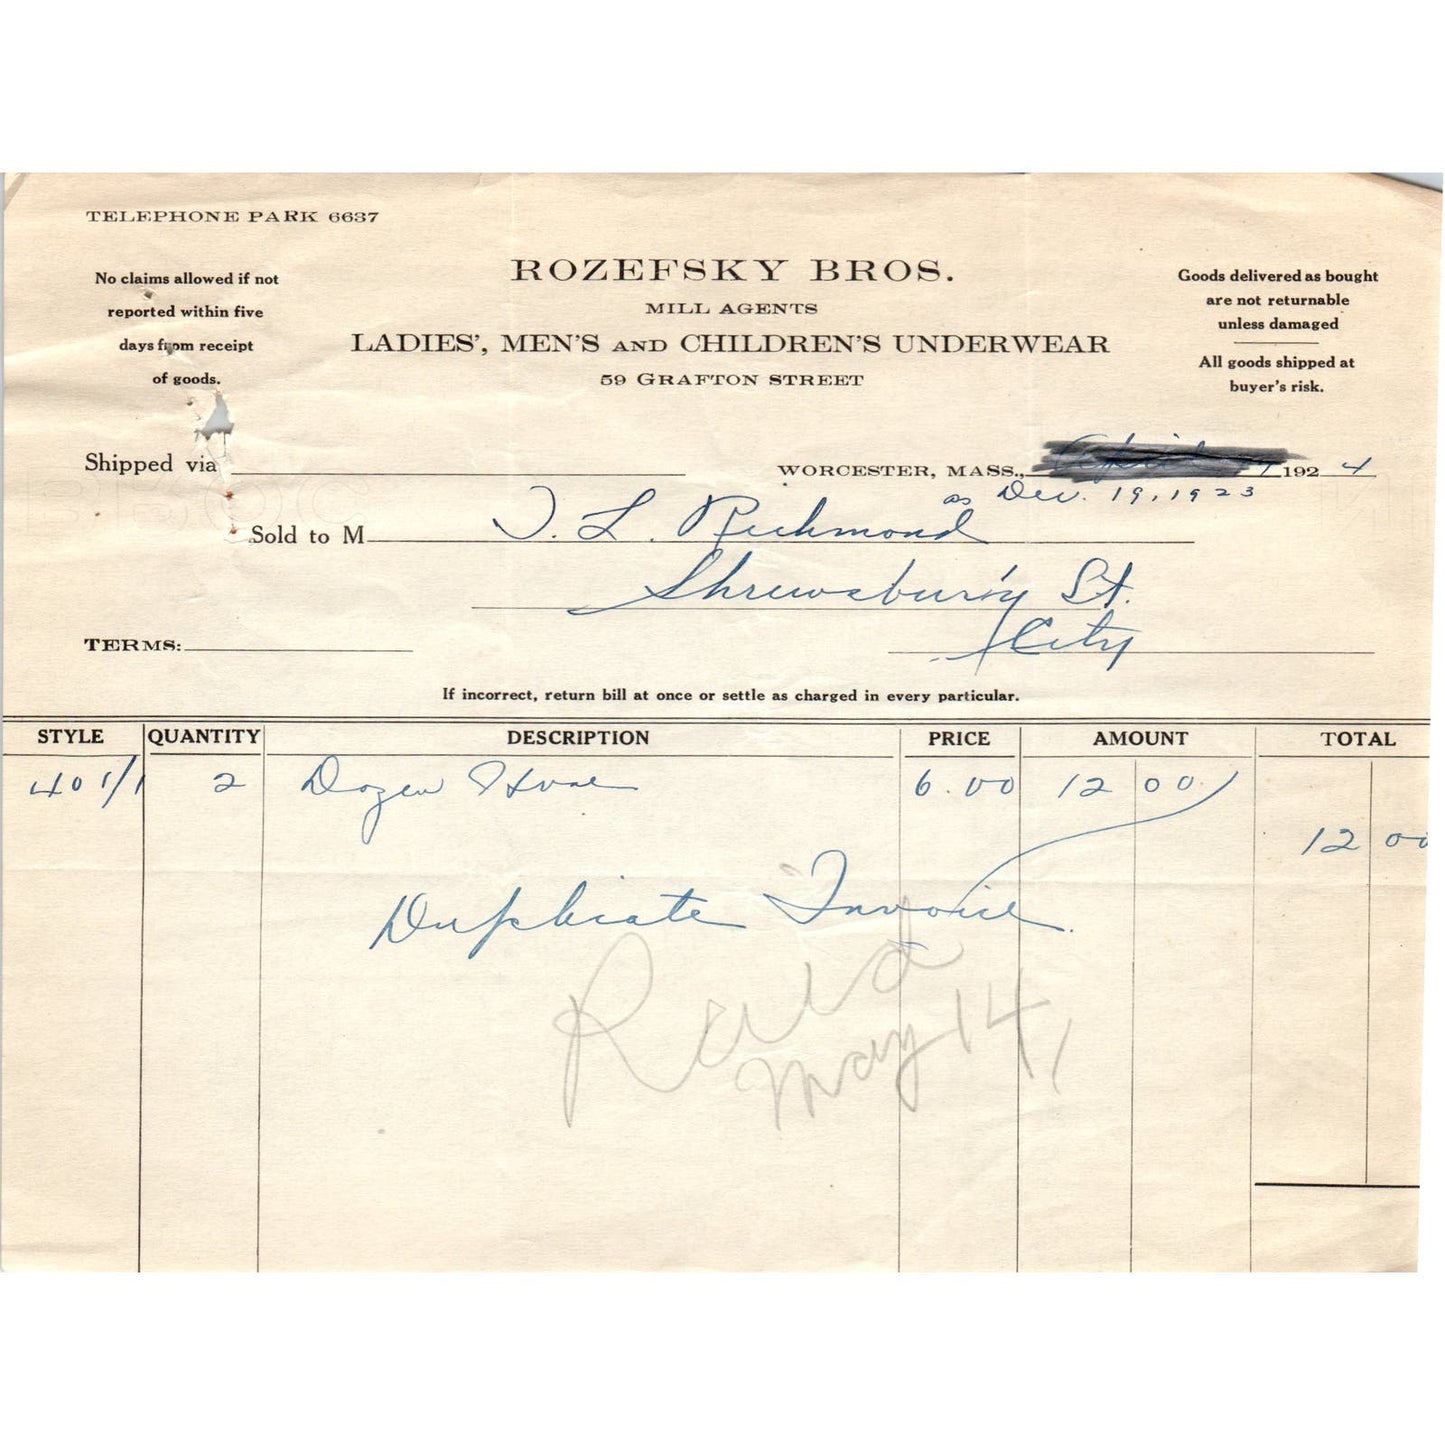 TELEPHONE PARK 6637
No claims allowed if not
reported within five
days from receipt
of goods.
ROZEFSKY BROS.
MILL AGENTS
LADIES', MEN'S AND CHILDREN'S UNDERWEAR
59 GRAFTON STREET
Goods delivered as bought
are not returnable
unless damaged
All goods shipped at
buyer's risk.
Shipped via
WORCESTER, MASS., 192 4
as Dec. 19, 1923
Sold to M J. L. Richmond
Shrewsbury St.
City
TERMS:
If incorrect, return bill at once or settle as charged in every particular.
STYLE QUANTITY DESCRIPTION PRICE AMOUNT TOTAL
401/1 2 Dozen Hose 6.00 12 00
12 00
Duplicate Invoice.
Paid
May 14,